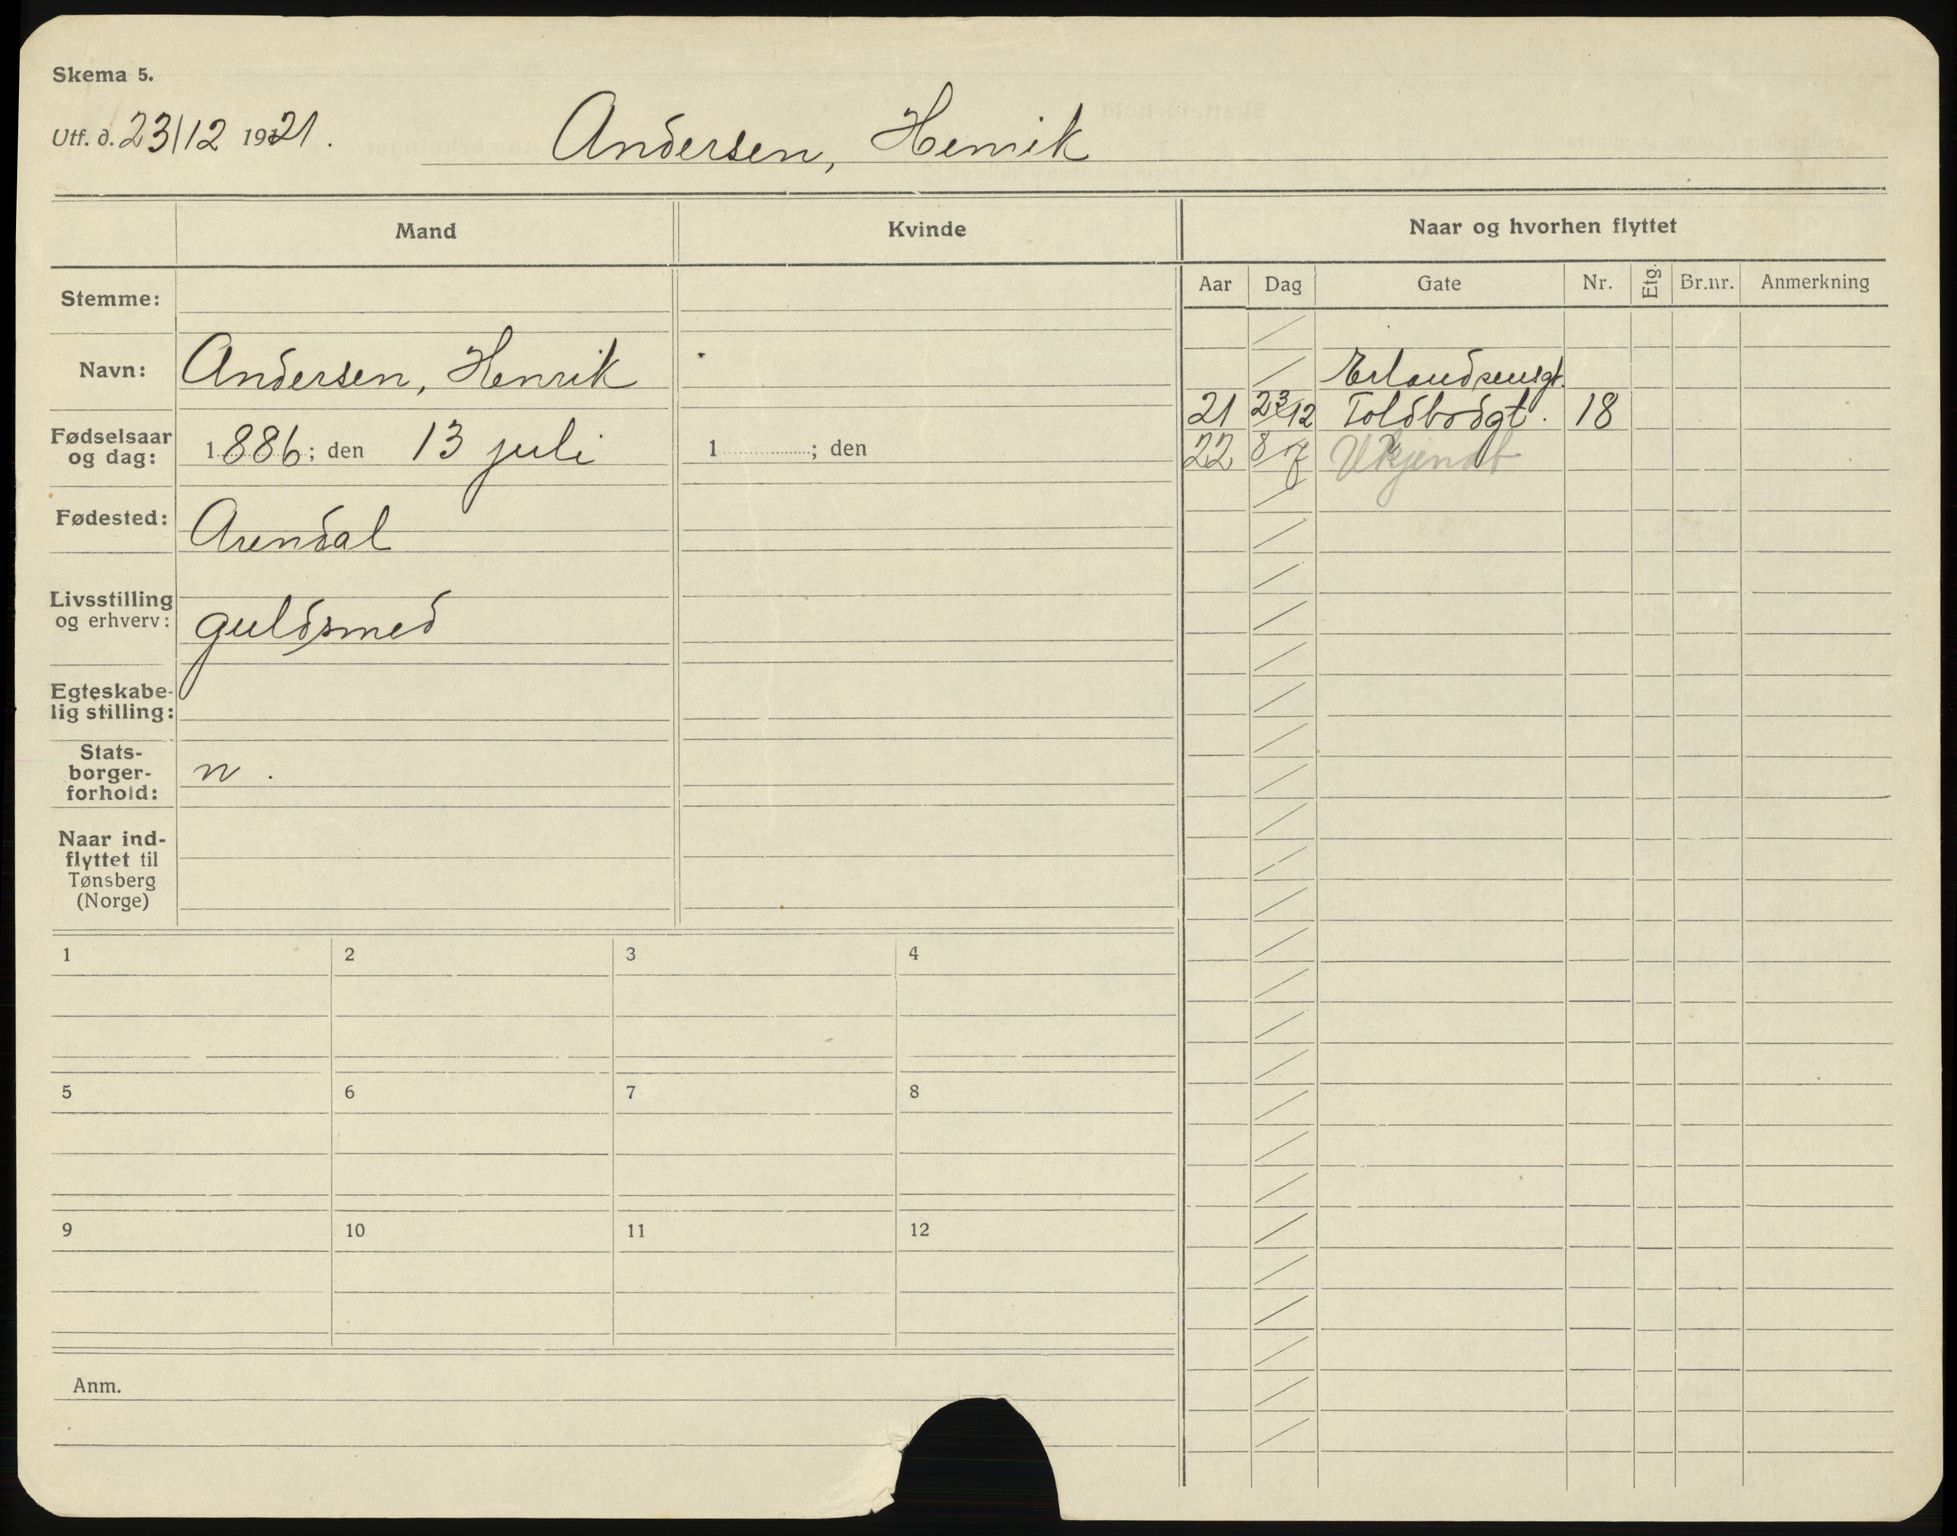 Skema 5.
Utf. d. 23/12 1921. Andersen, Henrik
Mand Kvinde Naar og hvorhen flyttet
Aar Dag Gate Nr. Etg. Br.nr. Anmerkning
Stemme:
Navn: Andersen, Henrik
Erlandsensgt.
21 23/12 Toldbodgt. 18
22 8/7 Ukjendt
Fødselsaar
og dag: 1886; den 13 juli 1 ; den
Fødested: Arendal
Livsstilling
og erhverv: guldsmed
Egteskabe-
lig stilling:
Stats-
borger-
forhold: n.
Naar ind-
flyttet til
Tønsberg
(Norge)
1 2 3 4
5 6 7 8
9 10 11 12
Anm.